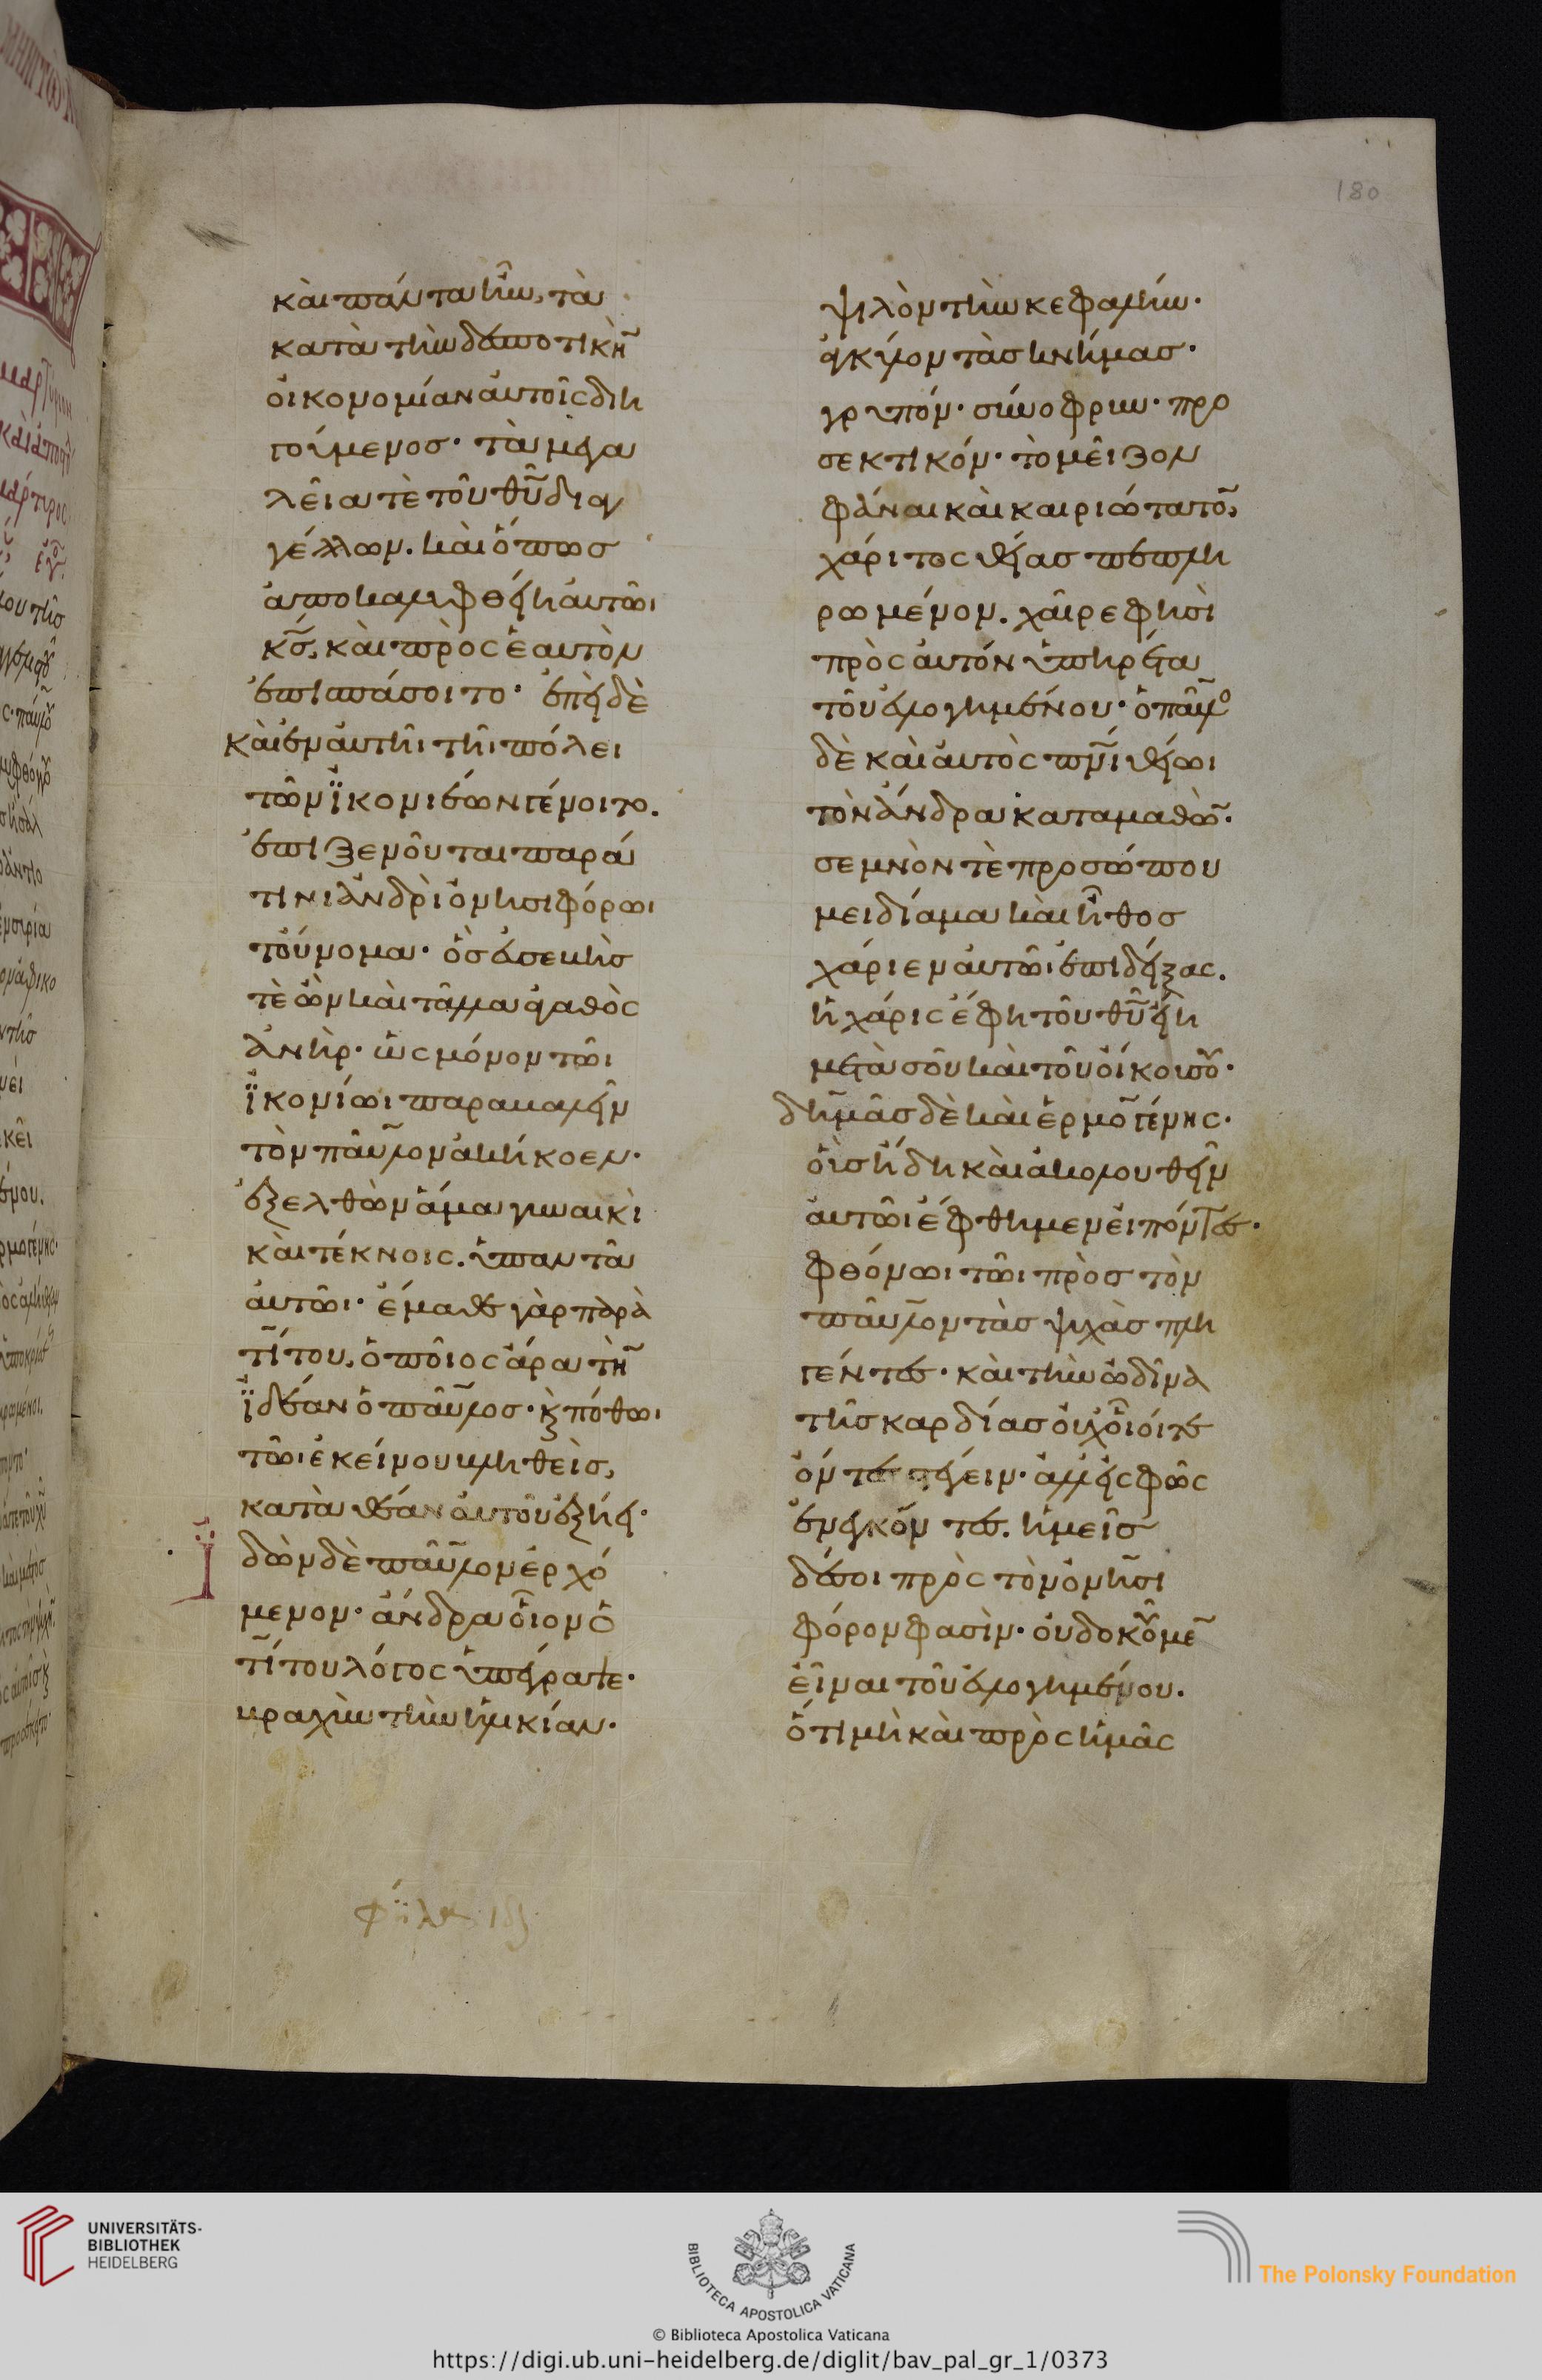 180
κὰι πάντα ἦν, τὰ
κατὰ τὴν δεσποτικὴν
οἰκονομίαν ἀυτοῖς διη
γούμενος· τὰ μεγα
λεῖα τὲ τοῦ θῦ διαγ
γέλλων. κὰι ὅπως
ἀποκαλυφθείη ἀυτῶι
κς, κὰι πρὸς ἑαυτὸν
ἐπισπάσοιτο· ἐπεὶ δὲ
κὰι ἐν ἀυτῆι τῆι πόλει
τῶν ϊκονιέων γένοιτο.
ἐπιξενοῦται παρά
τινι ἀνδρὶ ὀνησιφόρωι
τοὔνομα· ὃς εὐσεβὴς
τὲ ὢν κὰι τἄλλα ἀγαθὸς
ἀνὴρ· ὡς μόνον τῶι
ϊκονίωι παραβαλεῖν
τὸν παῦλον ἀκήκοεν·
ἐξελθὼν ἅμα γυναικὶ
κὰι τέκνοις. ὑπαντᾶ
ἀυτῶι· ἔμαθε γὰρ παρὰ
τίτου, ὁποῖος ἄρα τὴν
ϊδέαν ὁ παῦλος· κ πόθωι
τῶι ἐκείνου βληθεὶς,
κατὰ θέαν ἀυτοῦ ἐξήει·
Ϊδὼν δὲ παῦλον ἐρχό
μενον· ἄνδρα οἷον ὁ
τίτου λόγος ὑπέγραφε·
βραχὺν τὴν ἡλικίαν·
ψιλὸν τὴν κεφαλήν·
ἀγκύλον τὰς κνήμας·
γρυπόν· σύνοφρυν· προ
σεκτικόν· τὸ μεῖζον
φάναι κὰι καιριώτατον,
χάριτος θείας πεπλη
ρωμένον. χαῖρε φησὶ
πρὸς ἀυτόν ὑπηρέτα
τοῦ εὐλογημένου· ὁ παῦλος
δὲ κὰι ἀυτὸς πνι θείωι
τὸν ἄνδρα καταμαθὼν·
σεμνὸν τὲ προσώπου
μειδίαμα κὰι ἦθος
χάριεν ἀυτῶι ἐπιδείξας.
ἡ χάρις ἔφη τοῦ θῦ εἴη
μετὰ σοῦ κὰι τοῦ οἴκου σου·
δημᾶς δὲ κὰι ἑρμογένης·
οἷς ἤδη κὰι ἀκολουθεῖν
ἀυτῶι ἔφθημεν εἰπόντες·
φθόνωι τῶι πρὸς τὸν
παῦλον τὰς ψυχὰς πλη
γέντες· κὰι τὴν ὠδῖνα
τῆς καρδίας οὐχ οἷοί τε
ὄντες στέγειν· ἀλλ' εἰς φῶς
ἐνεγκόντες. ἡμεῖς
δέ σοι πρὸς τὸν ὀνησι
φόρον φασὶν· οὐ δοκοῦμεν
εἶναι τοῦ εὐλογημένου.
ὅτι μὴ κὰι πρὸς ἡμᾶς
UNIVERSITÄTS-
BIBLIOTHEK
HEIDELBERG
BIBLIOTECA APOSTOLICA VATICANA
The Polonsky Foundation
© Biblioteca Apostolica Vaticana
https://digi.ub.uni-heidelberg.de/diglit/bav_pal_gr_1/0373